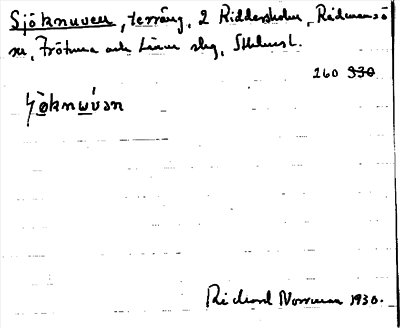 Sjöknuven, terräng, 2 Riddersholm, Rådmansö
sn, Frötuna och Länna slg, Sthlms l.
260 330
Richard Norrman 1930.